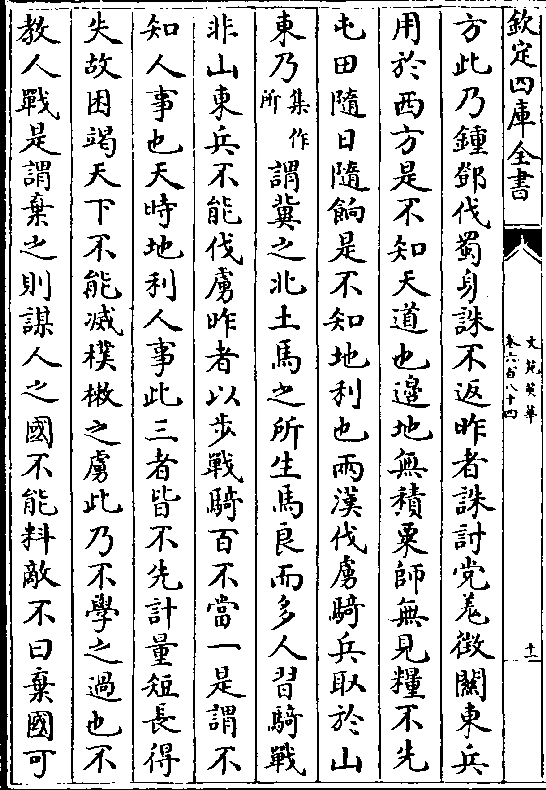 欽定四庫全書
文苑英華
卷六百八十四
十一
方此乃鍾鄧伐蜀身誅不返昨者誅討党羌徴關東兵
用於西方是不知天道也邊地無積粟師無見糧不先
屯田隨日隨餉是不知地利也兩漢伐虜騎兵取於山
東乃集作所謂冀之北土馬之所生馬良而多人習騎戰
非山東兵不能伐虜昨者以步戰騎百不當一是謂不
知人事也天時地利人事此三者皆不先計量短長得
失故困竭天下不能滅樸樕之虜此乃不學之過也不
教人戰是謂棄之則謀人之國不能料敵不曰棄國可